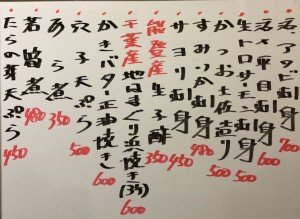 活アワビ刺身 700
活〆平目刺身 600
生トロ 刺身 500
かつお土佐造り 500
すみいか刺身 480
サヨリ刺身 450
能登産 生子酢 350
千葉産 地はまぐり浜焼き(3ケ) 600
かきバター正油焼き 600
穴子天ぷら 500
あら煮 350
若筍煮 480
たらの芽天ぷら 450